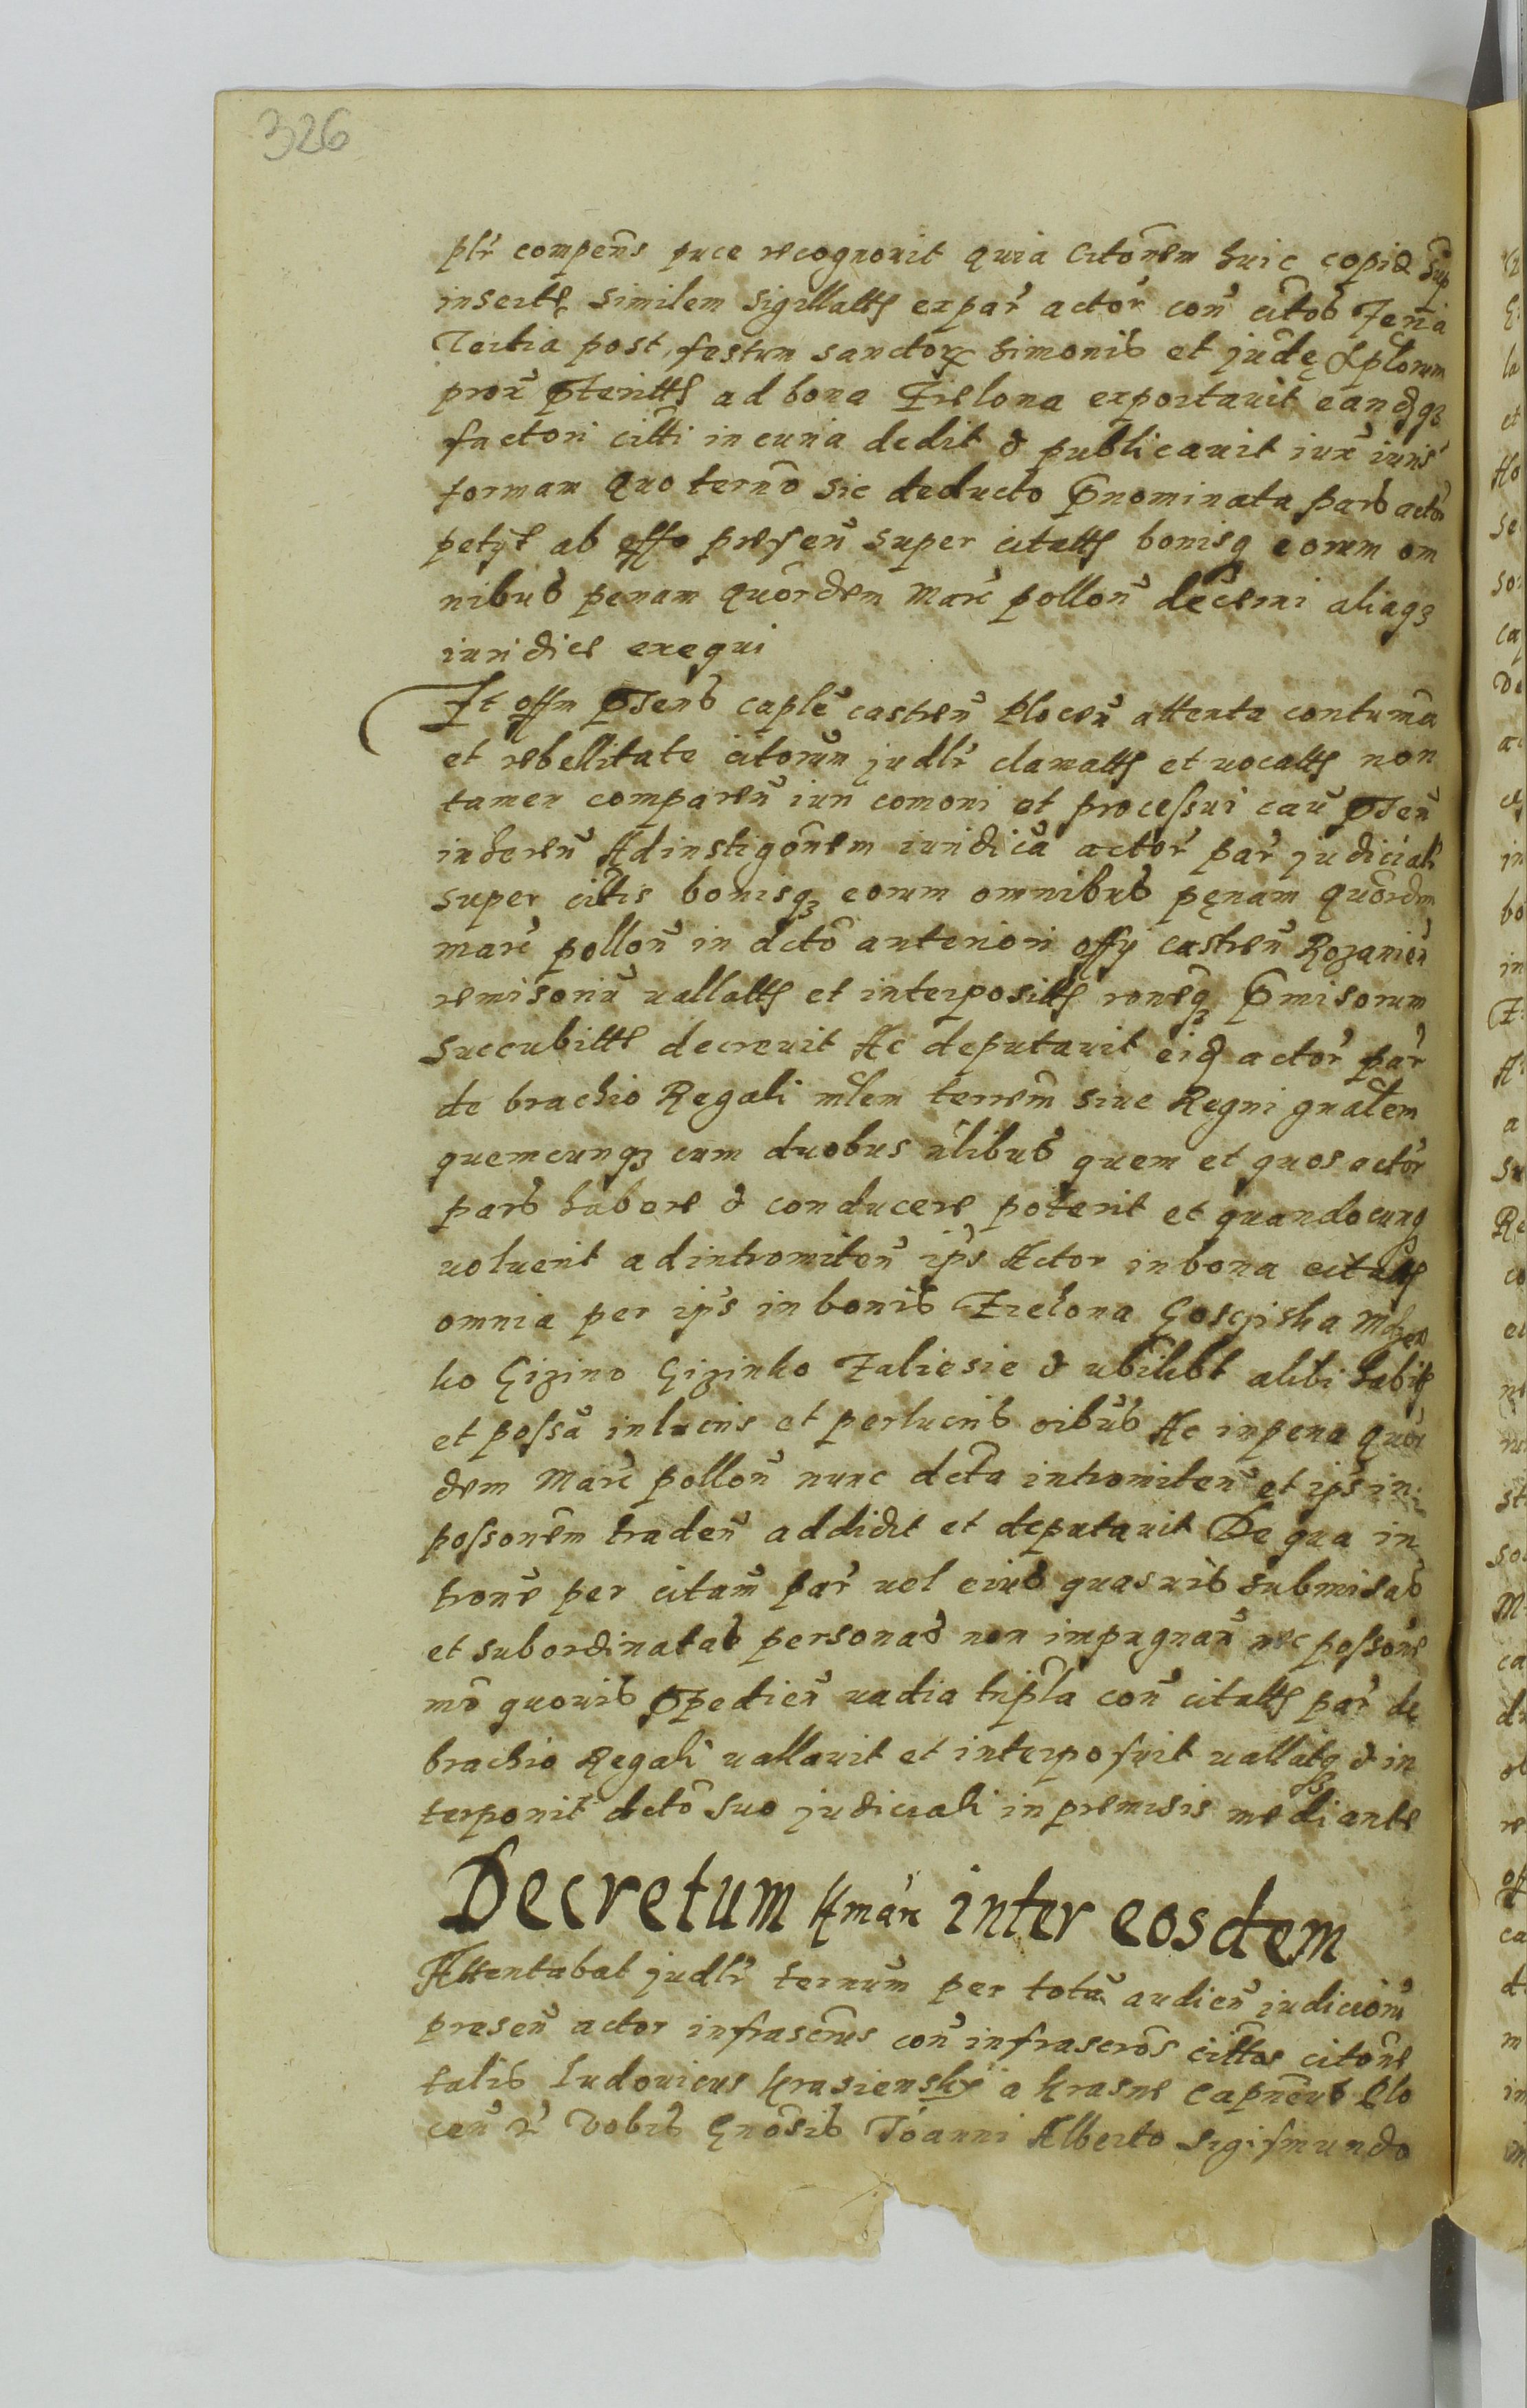 326
plr compens pnce recognovit quia Citonem huic copiæ sup
insertę similem sigillatts expar actor con citos Feria
Tertia post festum sanctor Simonis et judę Aplorum
prox pteritts ad bona Zielona exportavit eandqz
factori citti in curia dedit & publicavit iux iuris
formam Quo terno sic deducto Pnominata pars actor
petyt ab offo presen super citatts bonisq eorum om
nibus penam quordem Marc pollon decerni aliaqz
iuridice exequi
Et offm Ptens caple castren Plocen attenta contuma
et rebellitate citorum judlr clamatts et vocatts non
tamen comparen iuri comoni et processui cau Pten
inheren Ad instigonem iuridica actor par judiciali
super cittis bonisqz eorum omnibus pęnam quordem
marc pollon in dcto anteriori offy castren Rozanien
remisoriu vallatts et interpositts roneqz Pmisorum
succubitts decrevit Ac deputavit eid actor par
de brachio Regali mlem terrem sive Regni gnalem
quemcunqz cum duobus nlibus quem et quos actor
pars habere & conducere poterit et quandocunqz
voluerit ad intromiten ips Actor in bona citatts
omnia per ips in bonis Zielona Goscziska
ko Gizino Gizinko Zaliesie & ubilibt alibi habits
et possa in lucris et perlucris oibus Ac in pena quor
dem Marc pollon nunc dcta intromiten et ips in
possonem traden addidit et deputavit De qua in
trone per citam par vel eius quasvis submisas
et subordinatas personas non impugnan nec possone
mo quovis Ppedien vadia tripla con citatts par de
brachio Regali vallavit et interposuit vallatqz & in
terponit dcto suo judiciali in premisis mediante
Decretum Hmarc inter eosdem
Attentabat judlr ternum per tota audien iudicioru
presen actor infrascrius con infrascros cittos citone
talis Ludovicus Krasiensky a Krasne Capneus Plo
cen r Vobis Gnosis Joanni Alberto Sigismundo